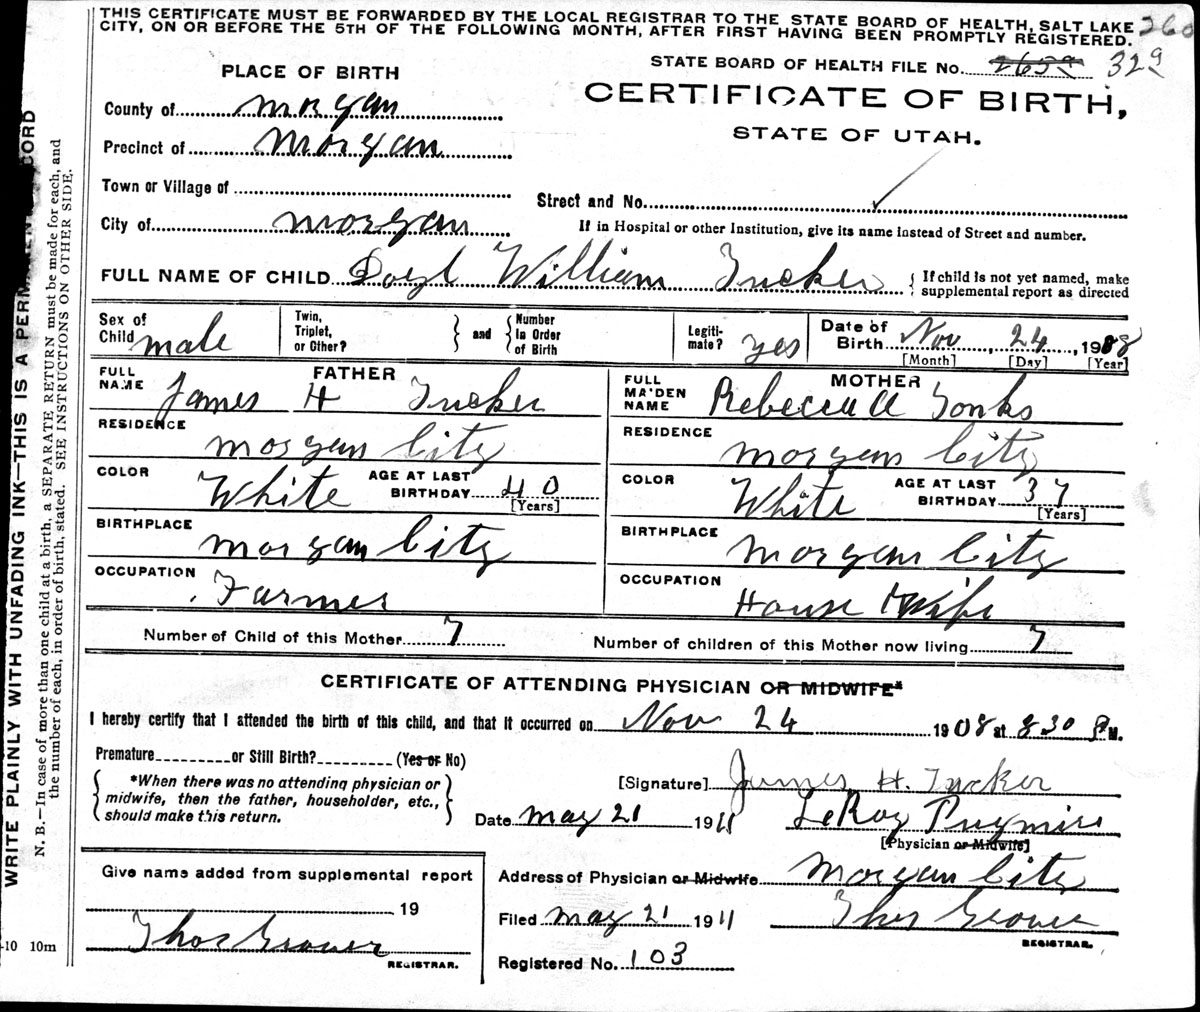 THIS CERTIFICATE MUST BE FORWARDED BY THE LOCAL REGISTRAR TO THE STATE BOARD OF HEALTH, SALT LAKE
CITY, ON OR BEFORE THE 5TH OF THE FOLLOWING MONTH, AFTER FIRST HAVING BEEN PROMPTLY REGISTERED.
260
STATE BOARD OF HEALTH FILE No. 329
PLACE OF BIRTH
CERTIFICATE OF BIRTH,
STATE OF UTAH.
County of Morgan
Precinct of Morgan
Town or Village of
Street and No.
City of Morgan
If in Hospital or other Institution, give its name instead of Street and number.
FULL NAME OF CHILD Doyl William Tucker
If child is not yet named, make
supplemental report as directed
Sex of
Child male
Twin,
Triplet,
or Other?
and
Number
in Order
of Birth
Legiti-
mate? yes
Date of
Birth Nov 24, 1908
[Month] [Day] [Year]
FATHER
FULL
NAME James H Tucker
RESIDENCE Morgan City
COLOR White
AGE AT LAST
BIRTHDAY 40
[Years]
BIRTHPLACE Morgan City
OCCUPATION Farmer
MOTHER
FULL
MAIDEN
NAME Rebecca A Sonks
RESIDENCE Morgan City
COLOR White
AGE AT LAST
BIRTHDAY 37
[Years]
BIRTHPLACE Morgan City
OCCUPATION House Wife
Number of Child of this Mother 7
Number of children of this Mother now living 7
CERTIFICATE OF ATTENDING PHYSICIAN OR MIDWIFE*
I hereby certify that I attended the birth of this child, and that it occurred on Nov 24 1908 at 830 P M.
Premature or Still Birth? (Yes or No)
*When there was no attending physician or
midwife, then the father, householder, etc.,
should make this return.
[Signature] James H. Tucker
Date May 21 1911 LeRoy Pugmire
[Physician or Midwife]
Give name added from supplemental report
19
Thos Grover
REGISTRAR.
Address of Physician or Midwife Morgan City
Filed May 21 1911 Thos Grover
REGISTRAR.
Registered No. 103
-10 10m
WRITE PLAINLY WITH UNFADING INK—THIS IS A PERMANENT RECORD
N. B.—In case of more than one child at a birth, a SEPARATE RETURN must be made for each, and
the number of each, in order of birth, stated. SEE INSTRUCTIONS ON OTHER SIDE.